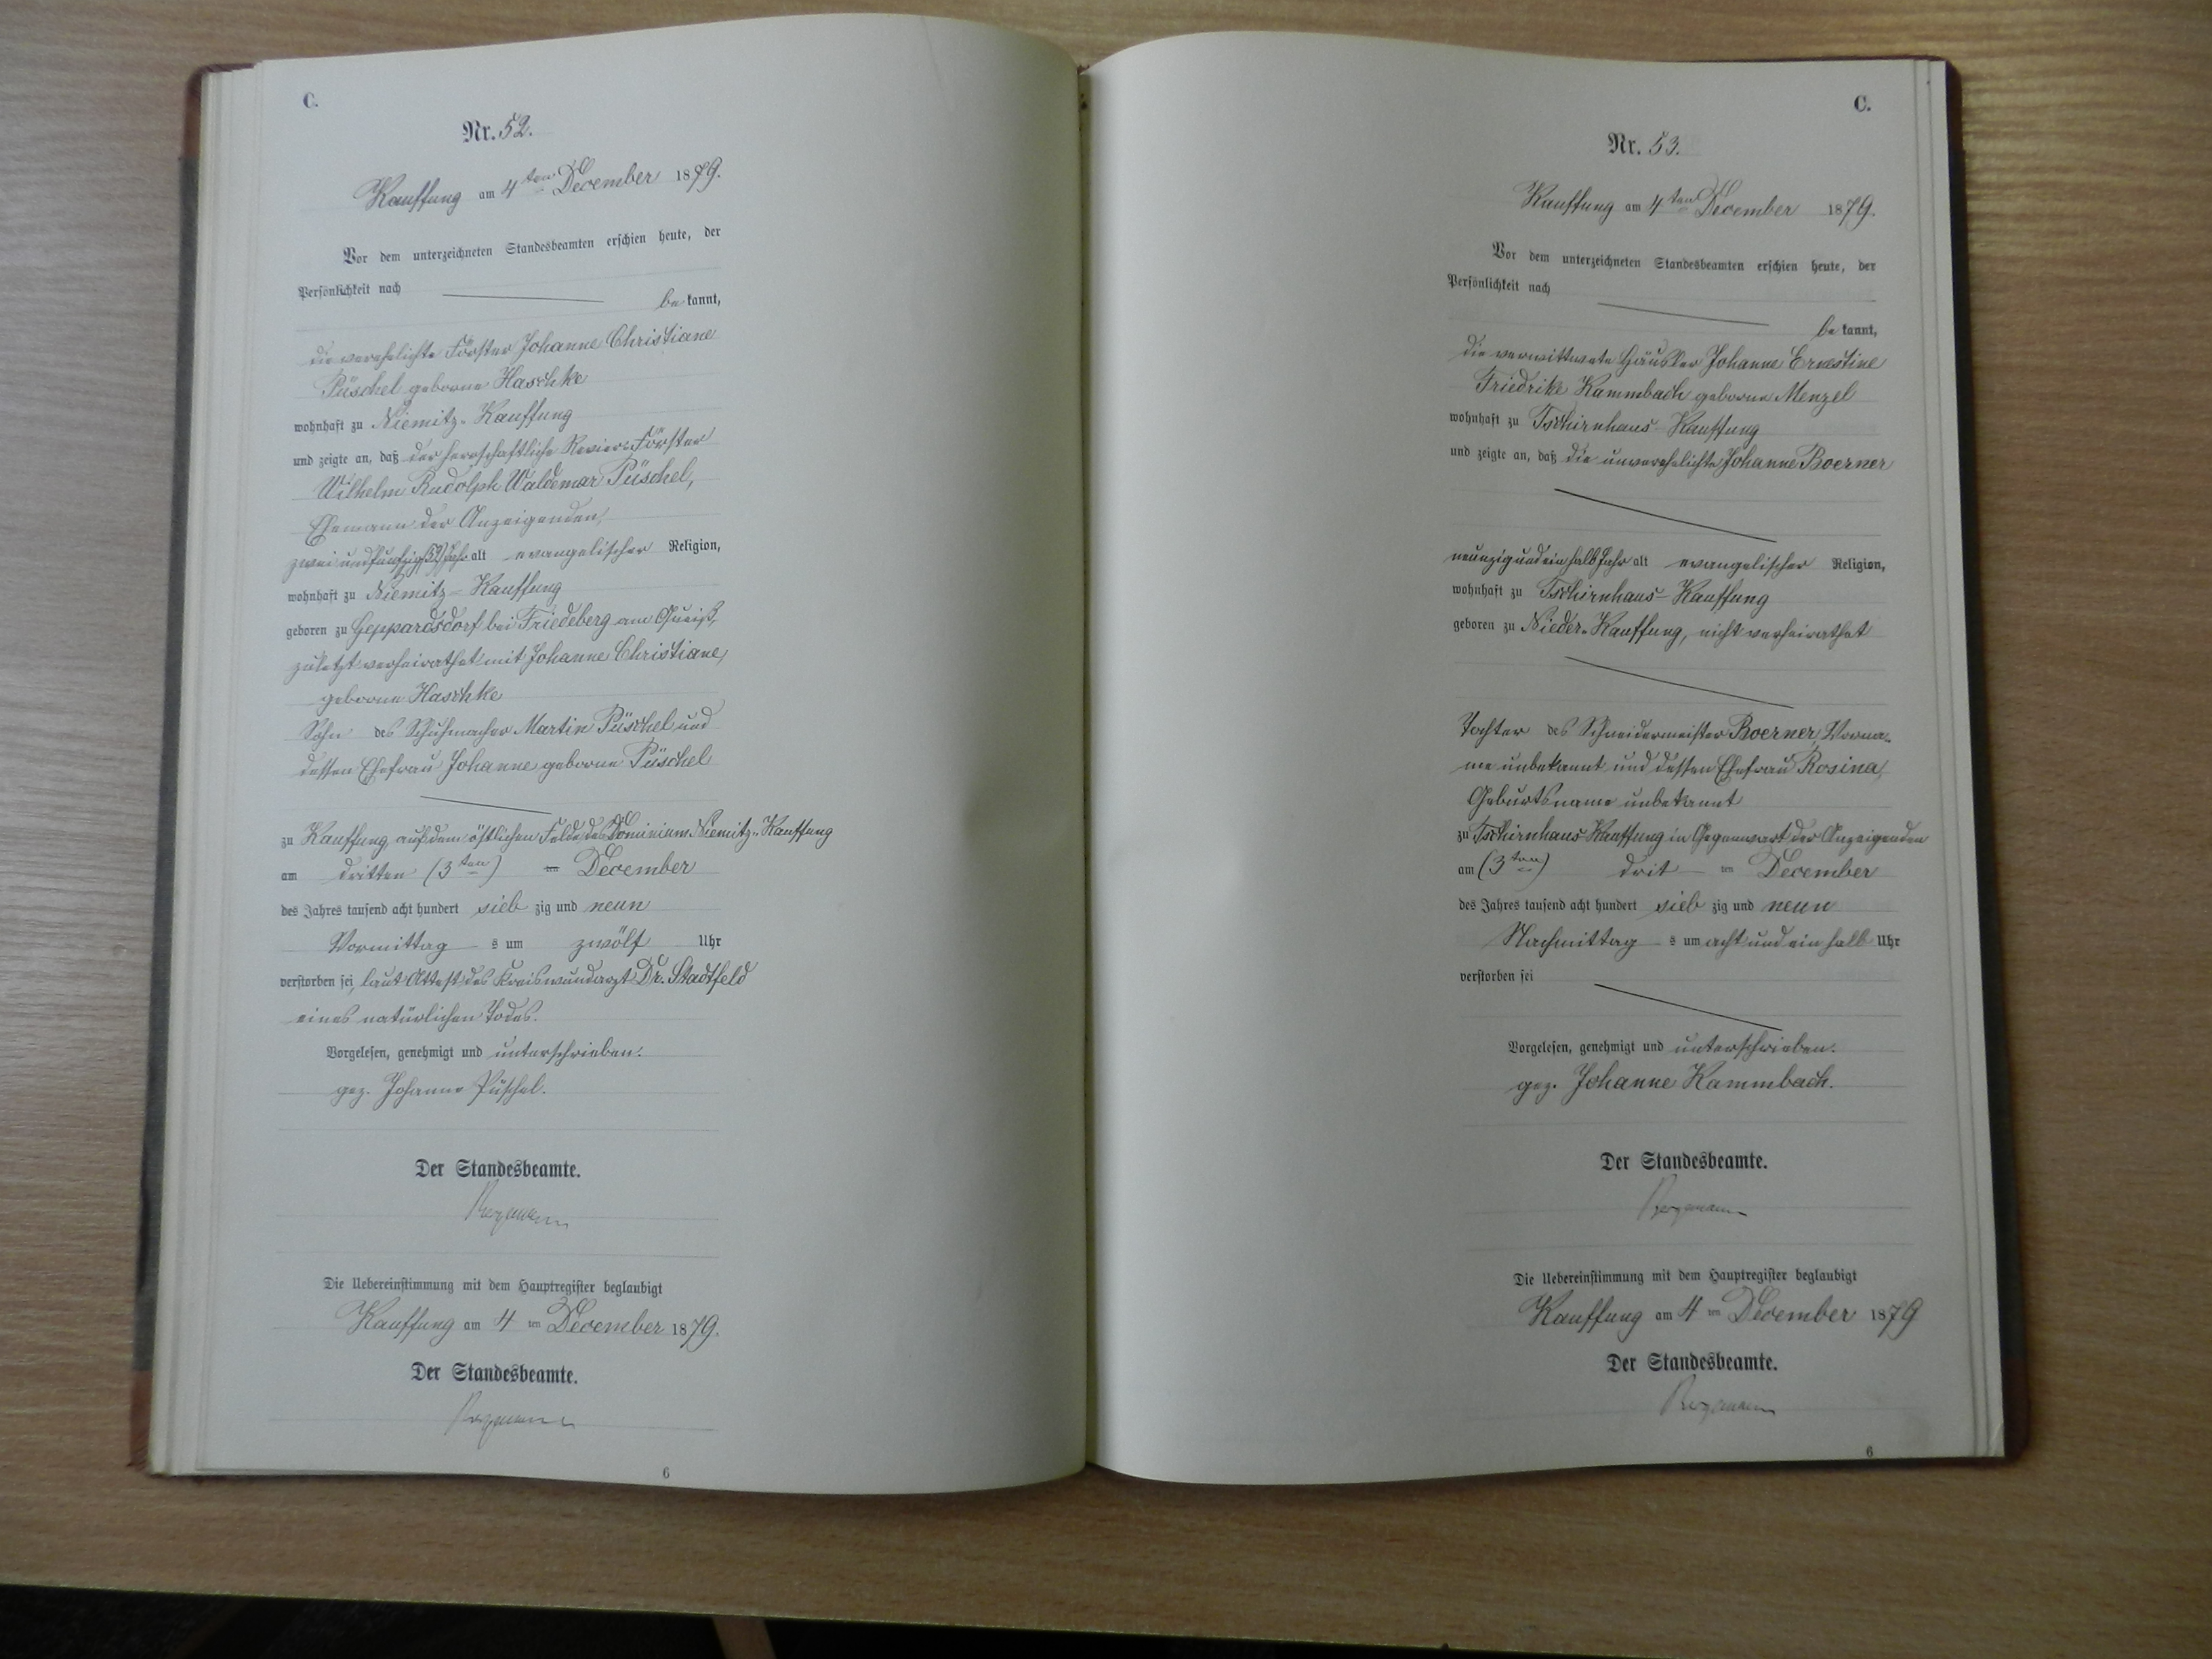 C.
Nr. 52.
Kauffung am 4ten December 1879.
Vor dem unterzeichneten Standesbeamten erschien heute, der
Persönlichkeit nach
be kannt,
die verehelichte Förster Johanne Christiane
Püschel geborne Haschke
wohnhaft zu Niemitz-Kauffung
und zeigte an, daß der herrschaftliche Revier-Förster
Wilhelm Rudolph Waldemar Püschel,
Ehemann der Anzeigenden,
zwei und funfzig (52) Jahr alt evangelischer Religion,
wohnhaft zu Niemitz-Kauffung
geboren zu Geppardsdorf bei Friedeberg am Queiß,
zuletzt verheirathet mit Johanne Christiane,
geborne Haschke
Sohn des Schuhmacher Martin Püschel und
dessen Ehefrau Johanne geborne Püschel
zu Kauffung, auf dem östlichen Felde des Dominium Niemitz-Kauffung
am dritten (3ten) ten December
des Jahres tausend acht hundert sieb zig und neun
Vormittag s um zwölf Uhr
verstorben sei, laut Attest des Kreiswundarzt Dr. Stadtfeld
eines natürlichen Todes.
Vorgelesen, genehmigt und unterschrieben.
gez. Johanne Püschel.
Der Standesbeamte.
Die Uebereinstimmung mit dem Hauptregister beglaubigt
Kauffung am 4 ten December 1879.
Der Standesbeamte.
6
C.
Nr. 53.
Kauffung am 4ten December 1879.
Vor dem unterzeichneten Standesbeamten erschien heute, der
Persönlichkeit nach
be kannt,
die verwittwete Häusler Johanne Ernestine
Friedrike Kammbach geborne Menzel
wohnhaft zu Tschirnhaus-Kauffung
und zeigte an, daß die unverehelichte Johanne Boerner
neunzig und ein halb Jahr alt evangelischer Religion,
wohnhaft zu Tschirnhaus-Kauffung
geboren zu Nieder-Kauffung, nicht verheirathet
Tochter des Schneidermeister Boerner, Vorna-
me unbekannt und dessen Ehefrau Rosina,
Geburtsname unbekannt
zu Tschirnhaus-Kauffung in Gegenwart der Anzeigenden
am (3ten) drit ten December
des Jahres tausend acht hundert sieb zig und neun
Nachmittag s um acht und ein halb Uhr
verstorben sei
Vorgelesen, genehmigt und unterschrieben.
gez. Johanne Kammbach.
Der Standesbeamte.
Die Uebereinstimmung mit dem Hauptregister beglaubigt
Kauffung am 4 ten December 1879
Der Standesbeamte.
6